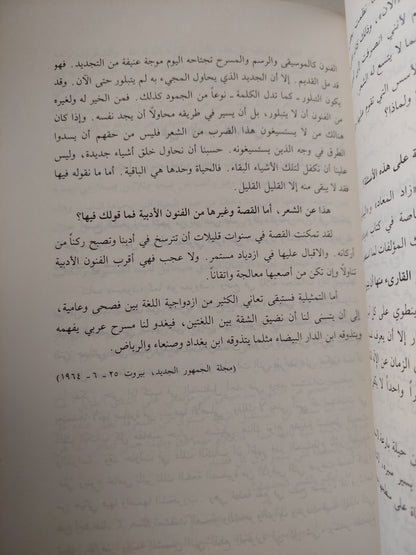 الفنون كالموسيقى والرسم والمسرح تجتاحه اليوم موجة عنيفة من التجديد. فهو
قد مل القديم. إلا أن الجديد الذي يحاول المجيء به لم يتبلور حتى الآن. وقد
يكون التبلور - كما تدل الكلمة - نوعاً من الجمود كذلك. فمن الخير له ولغيره
من الفنون أن لا يتبلور، بل أن يسير في طريقه محاولاً أن يجد نفسه. وإذا كان
هنالك من لا يستسيغون هذا الضرب من الشعر فليس من حقهم أن يسدوا
الطرق في وجه الذين يستسيغونه. حسبنا أن نحاول خلق أشياء جديدة، وليس
علينا أن نكفل لتلك الأشياء البقاء. فالحياة وحدها هي الباقية. أما ما نقوله فيها
فقد لا يبقى منه إلا القليل القليل.
هذا عن الشعر، أما القصة وغيرها من الفنون الأدبية فما قولك فيها؟
لقد تمكنت القصة في سنوات قليلات أن تترسخ في أدبنا وتصبح ركناً من
أركانه. والاقبال عليها في ازدياد مستمر. ولا عجب فهي أقرب الفنون الأدبية
تناولاً وإن تكن من أصعبها معالجة واتقاناً.
أما التمثيلية فستبقى تعاني الكثير من ازدواجية اللغة بين فصحى وعامية،
إلى أن يتسنى لنا أن نضيق الشقة بين اللغتين، فيغدو لنا مسرح عربي يفهمه
ويتذوقه ابن الدار البيضاء مثلما يتذوقه ابن بغداد وصنعاء والرياض.
(مجلة الجمهور الجديد، بيروت ٢٥ - ٦ - ١٩٦٤)